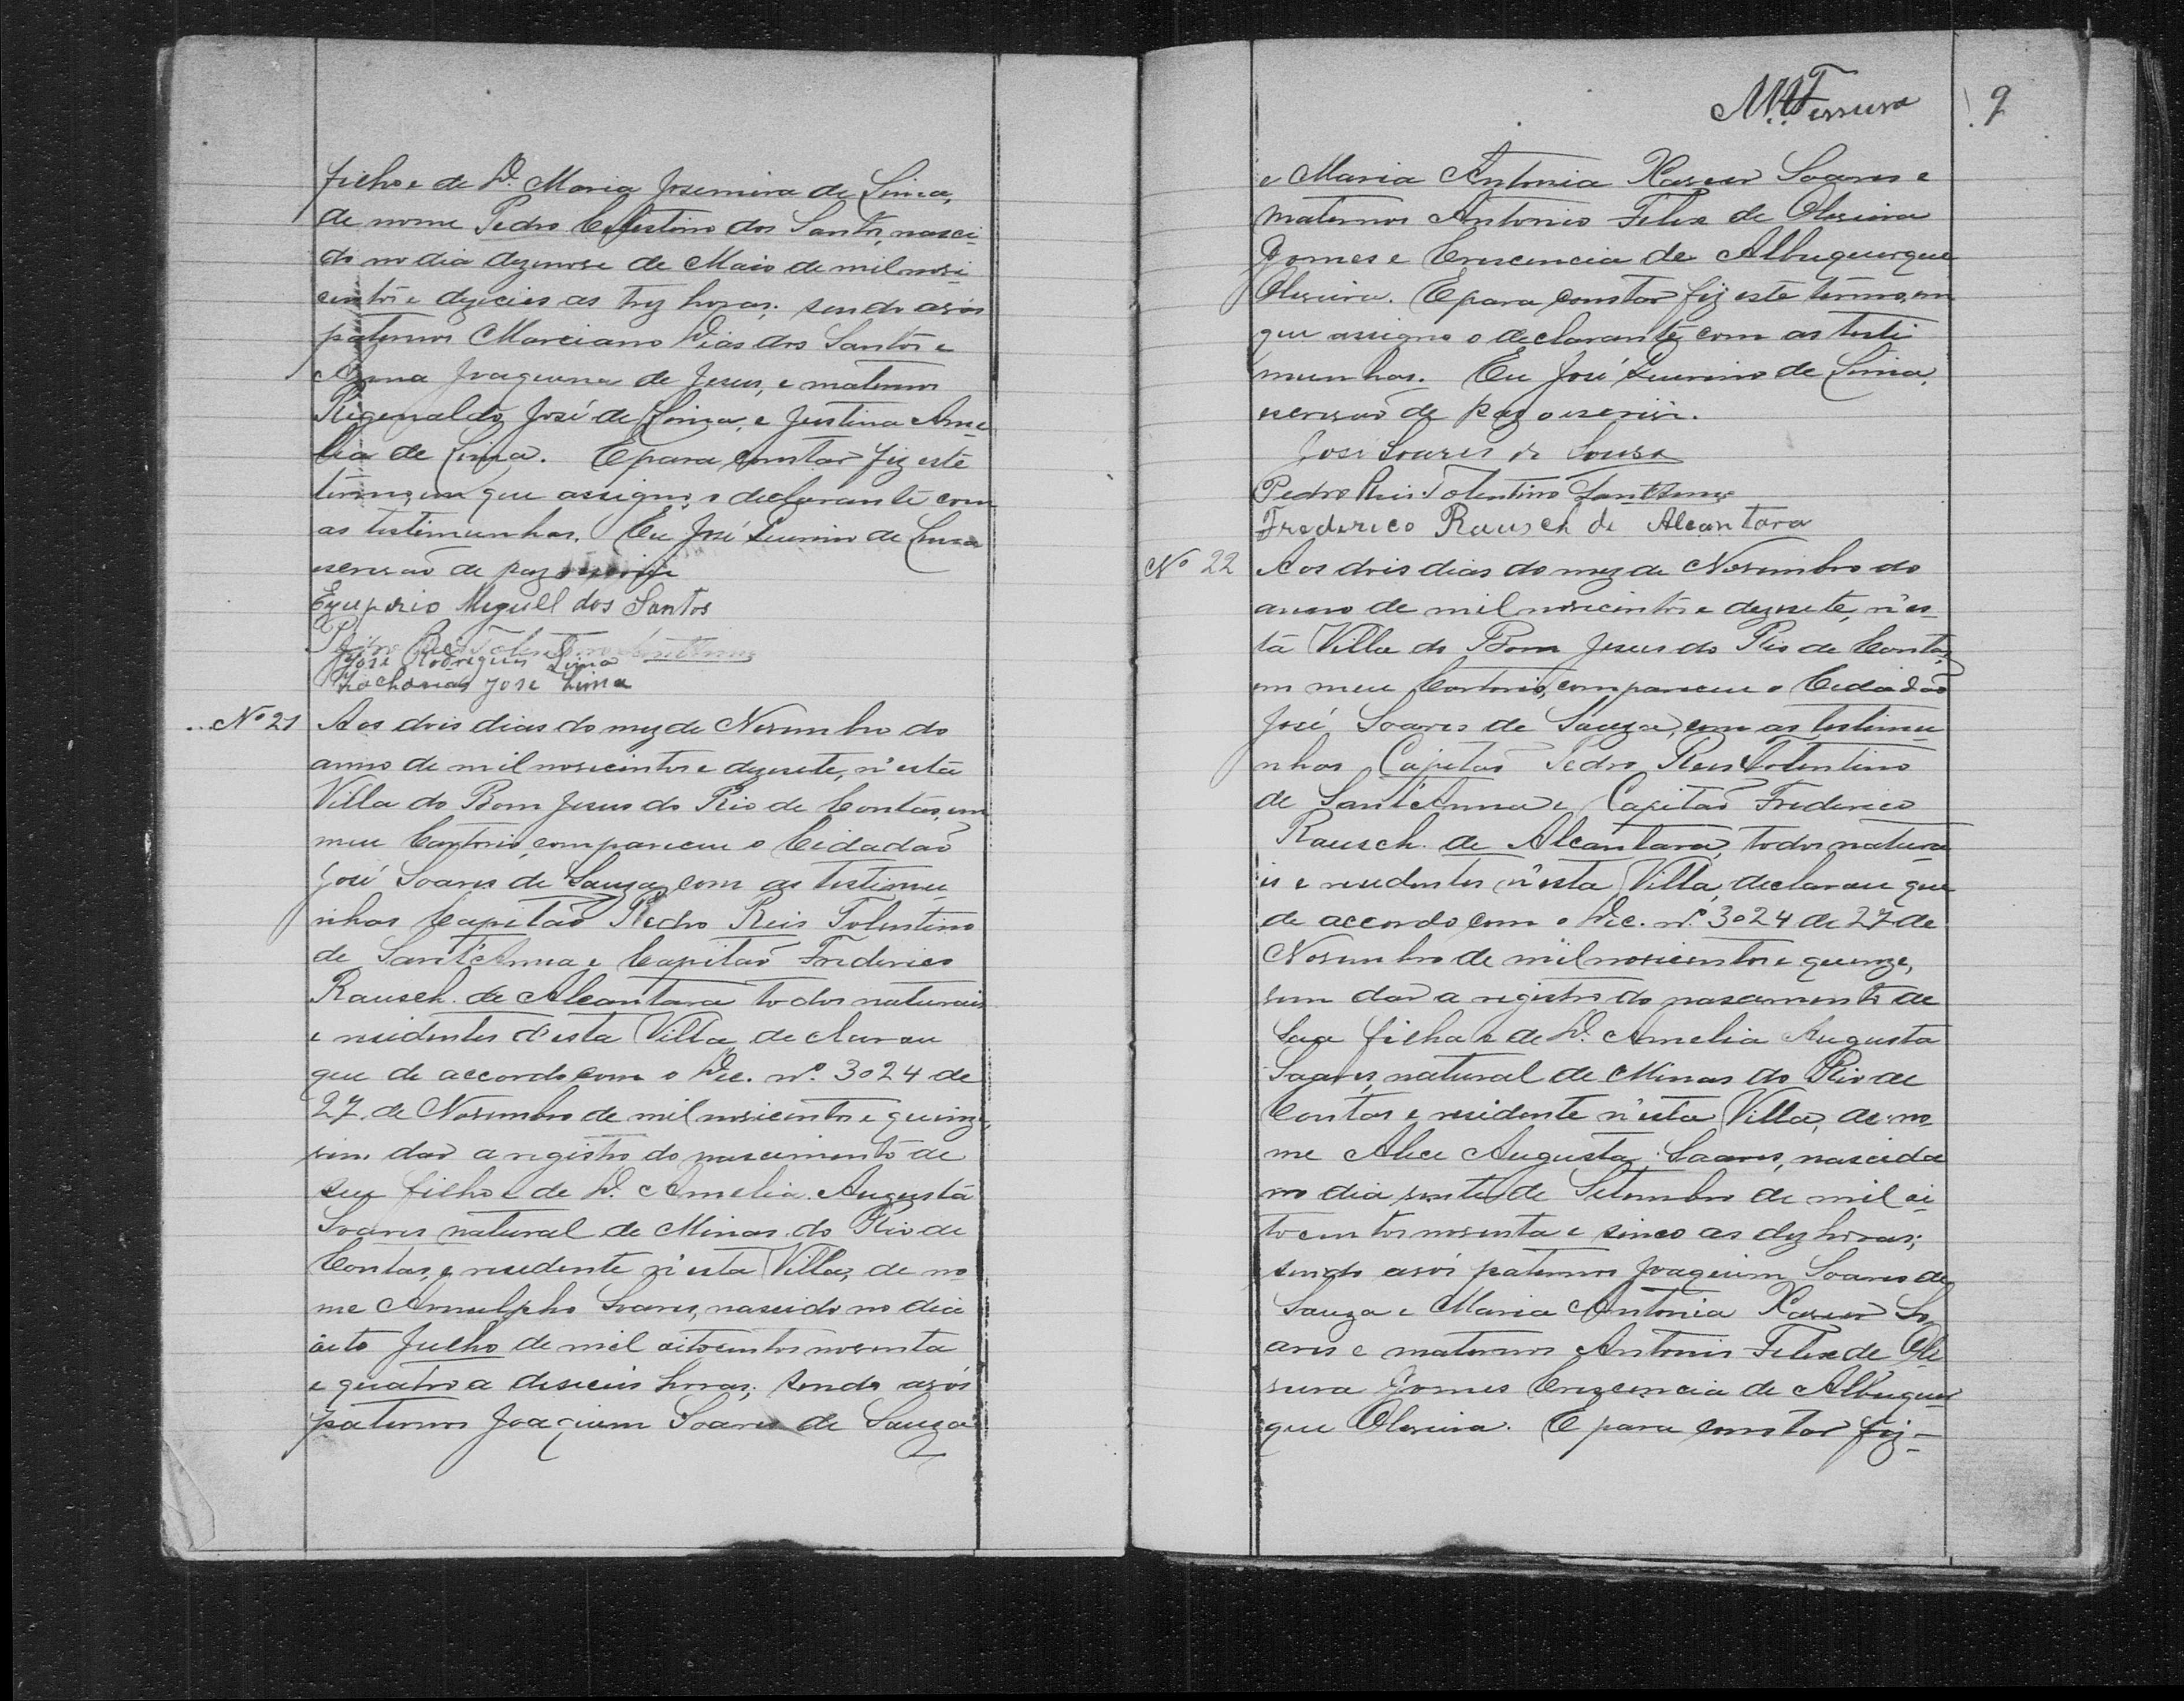 filho e de D. Maria Josemira de Lima,
de nome Pedro Celestino dos Santos, nasci-
do no dia dezenove de Maio de mil nove
centos e dezeseis as trez horas; sendo avós
paternos Marciano Dias dos Santos e
Anna Joaquina de Jesus, e maternos
Regenaldo José de Lima, e Justina Ame-
lia de Lima. E para constar fiz este
termo, em que assigna o declarante com
as testimunhas. Eu José Quirino de Lima
escrivaõ de paz o escrivi
Exuperio Miguell dos Santos
Pedro Reis Tolentino Santanna
José Rodrigues Lima
Zacharias José Lima
Nº 21 Aos dois dias do mez de Novembro do
anno de mil novecintos e dezesete, n'esta
Villa do Bom Jesus do Rio de Contas, em
meu Cartorio, compareceu o Cidadaõ
José Soares de Sauza, com as testimu-
nhas Capitaõ Pedro Reis Tolentino
de Sant'Anna e Capitaõ Frederico
Rausch. de Alcantara todos naturais
e residentes d'esta Villa declarou
que de accordo com o Dec. nº. 3024 de
27 de Novembro de mil novicentos e quinze,
vem dar a registro do nascimento de
seu filho e de D. Amelia Augusta
Soares natural de Minas do Rio de
Contas, e residente n'esta Villa, de no-
me Arnulpho Soares, nascido no dia
oito Julho de mil oitocentos noventa
e quatro a deseceis horas; sendo avós
paternos Joaquim Soares de Sauza
M. Ferreira 9
e Maria Antonia Xavier Soares e
maternos Antonio Felix de Oliveira
Gomes e Crescencia de Albuquerque
Oliveira. E para constar fiz este termo, em
que assigno o declarante com as testi
munhas. Eu José Quirino de Lima,
escrivaõ de paz o escrivi.
José Soares de Souza
Pedro Reis Tolentino Santanna
Frederico Rausch de Alcantara
Nº 22 Aos dois dias do mez de Novembro do
anno de mil novecentos e dezesete, n'es-
ta Villa do Bom Jesus do Rio de Contas,
em meu Cartorio, compareceu o Cidadaõ
José Soares de Sauza, com as testimu-
nhas Capitaõ Pedro Reis Tolentino
de Sant'Anna e Capitaõ Frederico
Rausch. de Alcantara, todos natura-
is e residentes n'esta Villa, declarou que
de accordo com o Dec. nº. 3024 de 27 de
Novembro de mil novicentos e quinze,
vem dar a registro do nascimento de
sua filha e de D. Amelia Augusta
Soares, natural de Minas do Rio de
Contas e residente n'esta Villa, de no-
me Alice Augusta Soares, nascida
no dia vinte de Setembro de mil oi-
tocentos noventa e sinco as dez horas;
sendo avós paternos Joaquim Soares de
Sauza e Maria Antonia Xavier So-
ares e maternos Antonio Felix de Oli
veira Gomes Crescencia de Albuquer-
que Oliveira. E para constar fiz-